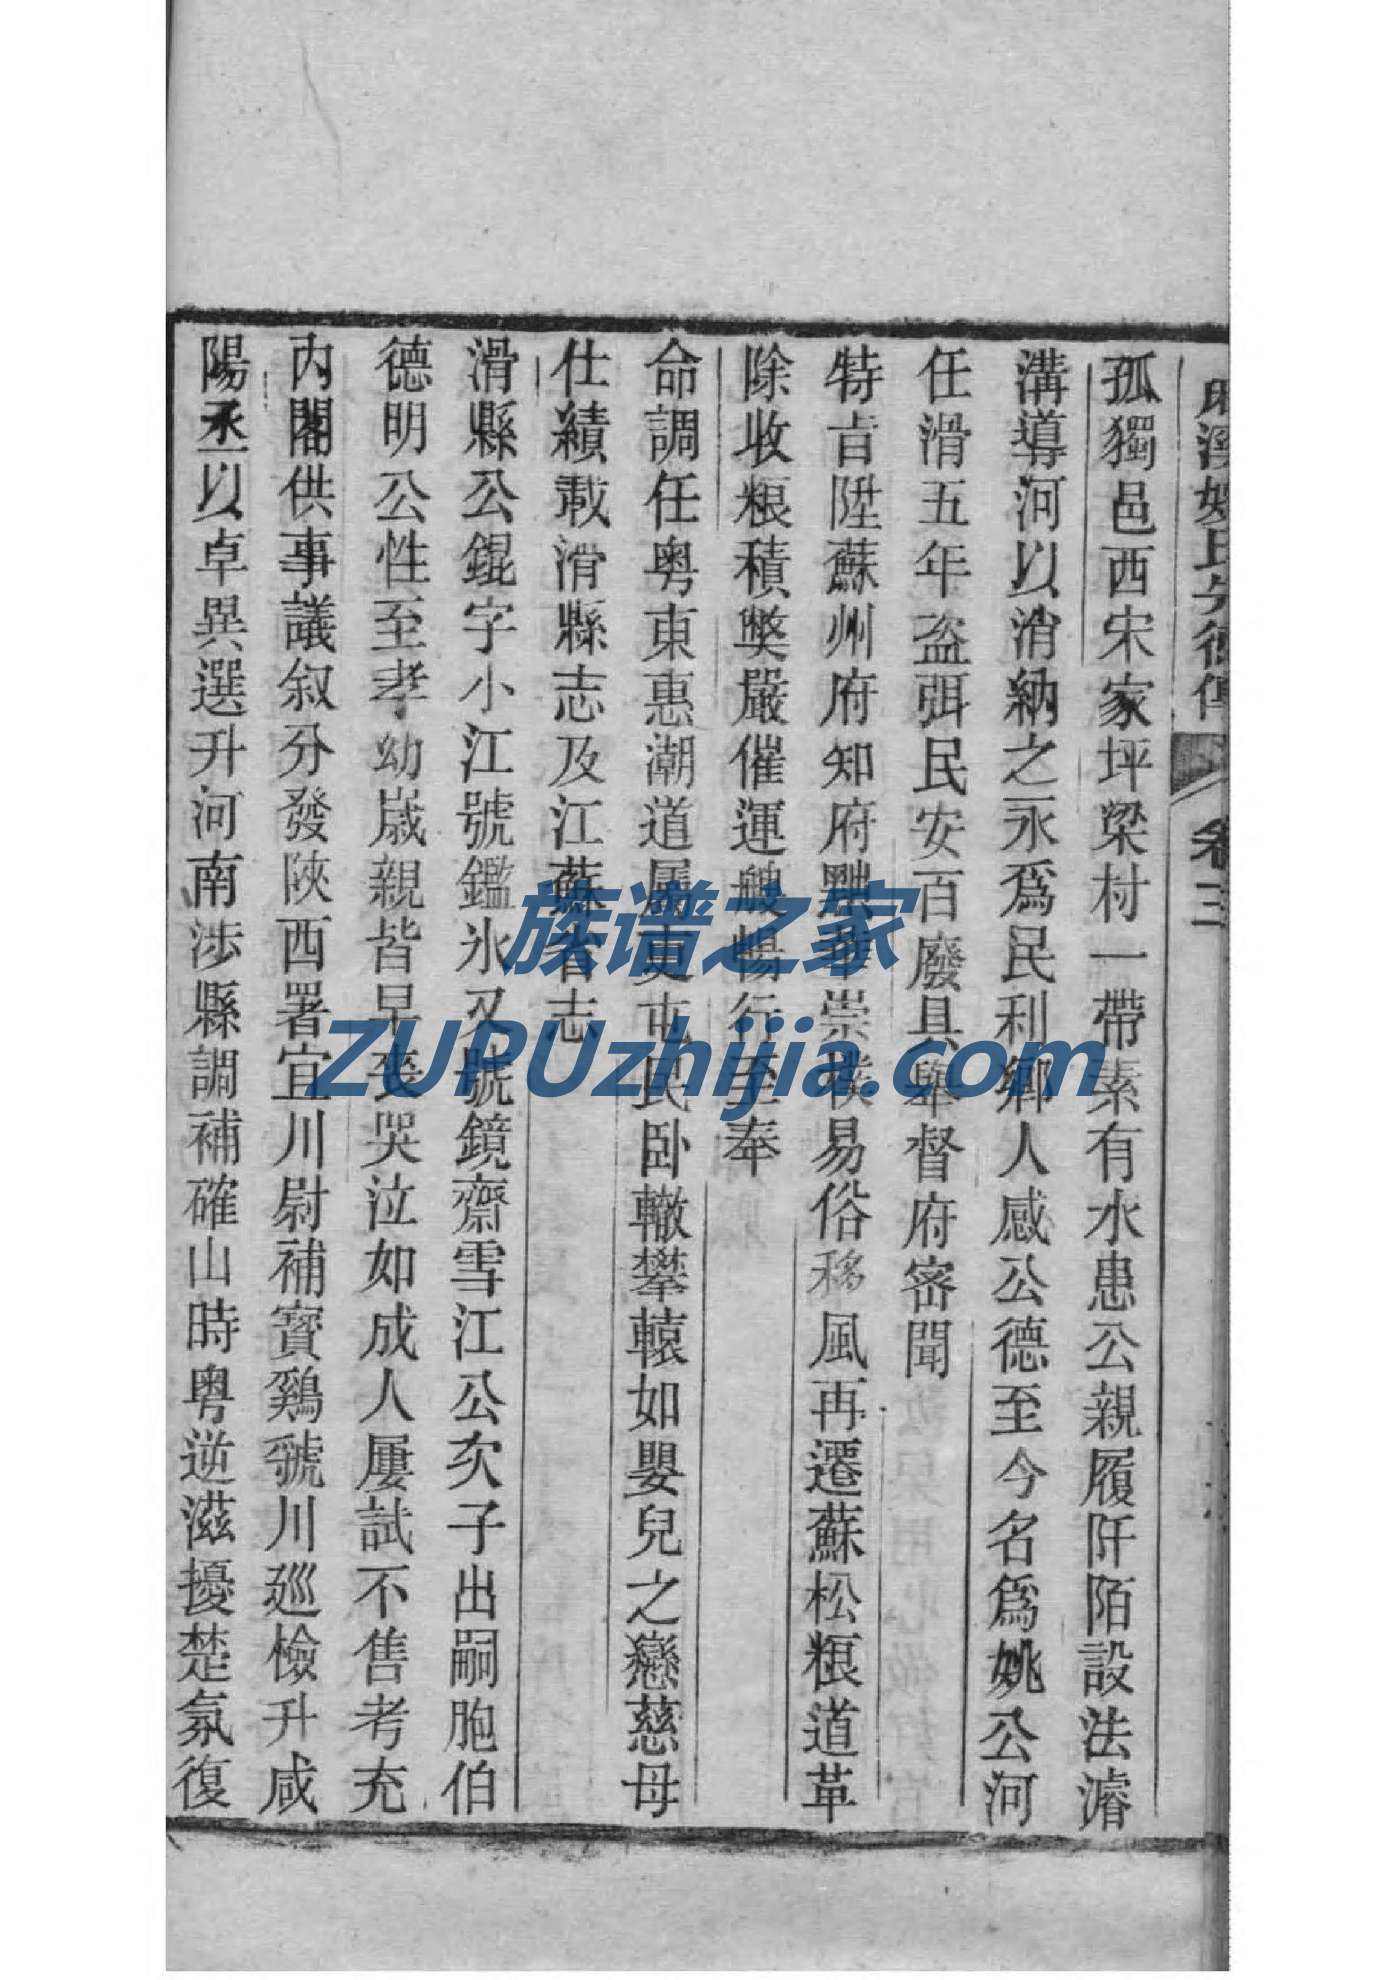 麻溪姚氏先德傳
卷三
孤獨邑西宋家坪梁村一帶素有水患公親履阡陌設法濬
溝導河以消納之永爲民利鄉人感公德至今名爲姚公河
任滑五年盜弭民安百廢具舉督府密聞
特旨陞蘇州府知府黜華崇樸易俗移風再遷蘇松粮道革
除收粮積獘嚴催運艘暢行至奉
命調任粤東惠潮道屬吏屯民卧轍攀轅如嬰兒之戀慈母
仕績載滑縣志及江蘇省志
滑縣公錕字小江號鑑氷又號鏡齋雪江公次子出嗣胞伯
德明公性至孝幼嵗親皆早丧哭泣如成人屢試不售考充
内閣供事議叙分發陜西署宜川尉補寳鷄虢川廵檢升咸
陽丞以卓異選升河南涉縣調補確山時粤逆滋擾楚氛復
族谱之家
ZUPUzhijia.com